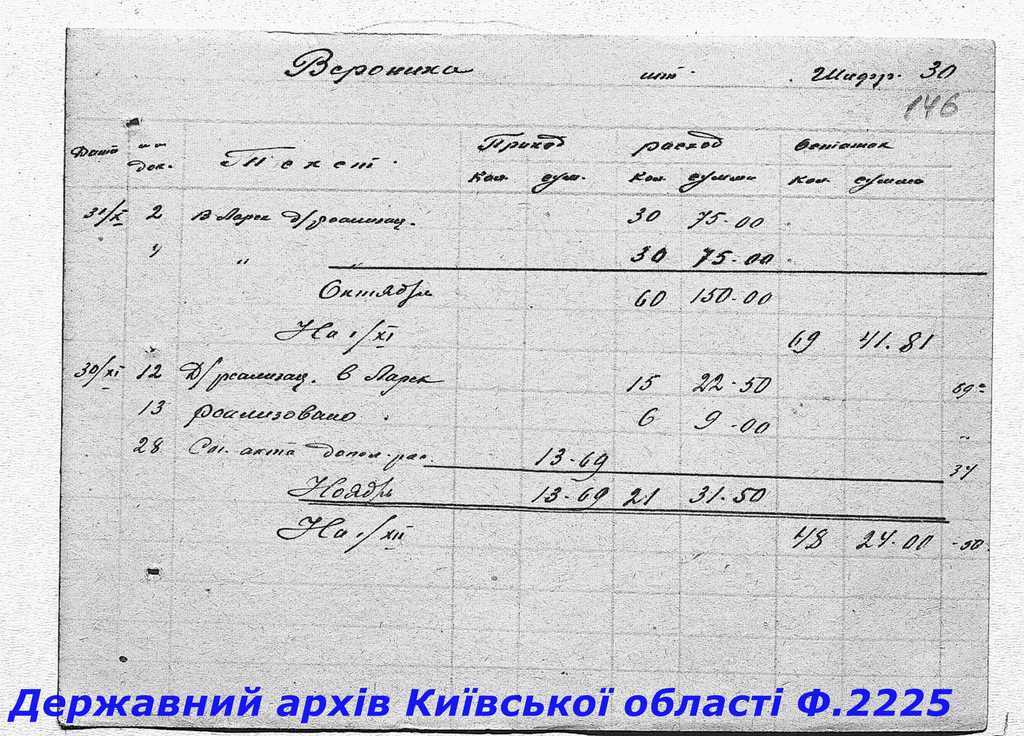 Вероника шт. Шифр. 30
146
Дата док. Текст. Приход расход Остаток
Кол. сум. кол сумма кол. сумма
31/X 2 В Ларек д/реализац. 30 75-00
" " 30 75-00
Октябрь 60 150-00
На 1/XI 69 41.81
30/XI 12 Д/реализац. в Ларек 15 22-50
13 реализовано 6 9-00
28 Сог. акта допол. рас. 13-69
Ноябрь 13-69 21 31-50
На 1/XII 48 24-00 -50
Державний архів Київської області Ф.2225